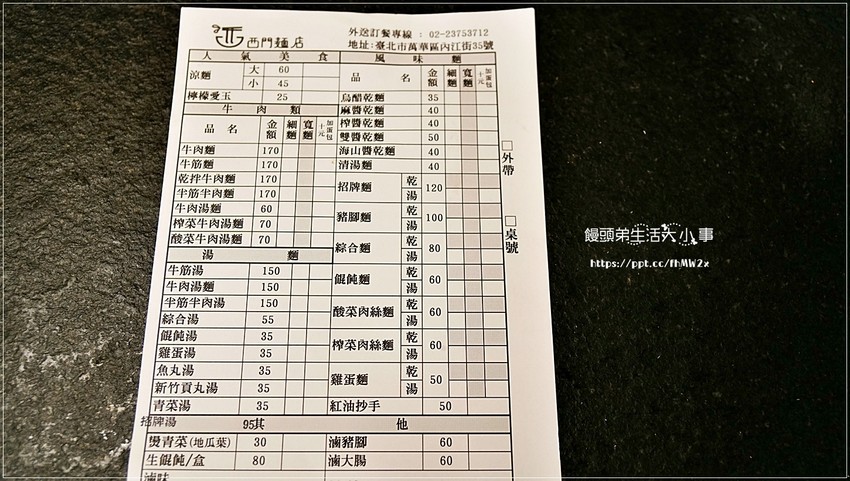 西門麵店
外送訂餐專線：02-23753712
地址：臺北市萬華區內江街35號
人氣美食
涼麵 大 60
小 45
檸檬愛玉 25
牛肉類
品名 金額 細麵 寬麵 加蛋包十元
牛肉麵 170
牛筋麵 170
乾拌牛肉麵 170
半筋半肉麵 170
牛肉湯麵 60
榨菜牛肉湯麵 70
酸菜牛肉湯麵 70
湯麵
牛筋湯 150
牛肉麵 150
半筋半肉湯 150
綜合湯 55
餛飩湯 35
雞蛋湯 35
魚丸湯 35
新竹貢丸湯 35
青菜湯 35
招牌湯 95
風味麵
品名 金額 細麵 寬麵 加蛋包十元
烏醋乾麵 35
麻醬乾麵 40
榨醬乾麵 40
雙醬乾麵 50
海山醬乾麵 40
清湯麵 40
招牌麵 乾 湯 120
豬腳麵 乾 湯 100
綜合麵 乾 湯 80
餛飩麵 乾 湯 60
酸菜肉絲麵 乾 湯 60
榨菜肉絲麵 乾 湯 60
雞蛋麵 乾 湯 50
紅油抄手 50
其他
燙青菜(地瓜葉) 30 滷豬腳 60
生餛飩/盒 80 滷大腸 60
滷味
□外帶
□桌號
饅頭弟生活大小事
https://ppt.cc/fhMW2x